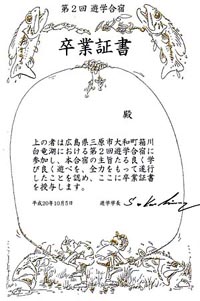 第2回 遊学合宿
卒業証書
殿
上の者は広島県三原市大和町箱川
白竜湖における第2回遊学合宿に
参加し、本合宿の主旨たる良く学
び良く遊べを、全力をもって遂行
したことを認め、ここに卒業証書
を授与します。
平成20年10月5日
遊学学長